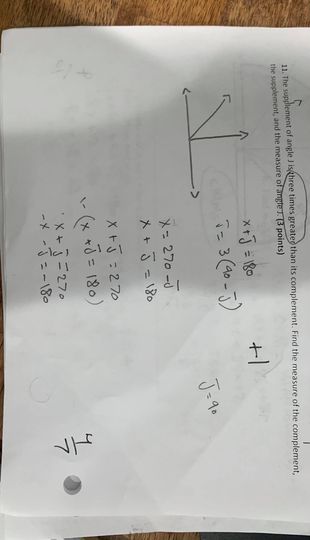 11. The supplement of angle J is three times greater than its complement. Find the measure of the complement,
the supplement, and the measure of angle J. (3 points)
x + J = 180
J = 3(90 - J)
+1
J = 90
x = 270 - J
x + J = 180
x + J = 270
(x + J = 180)
x + J = 270
-x - J = -180
4/7